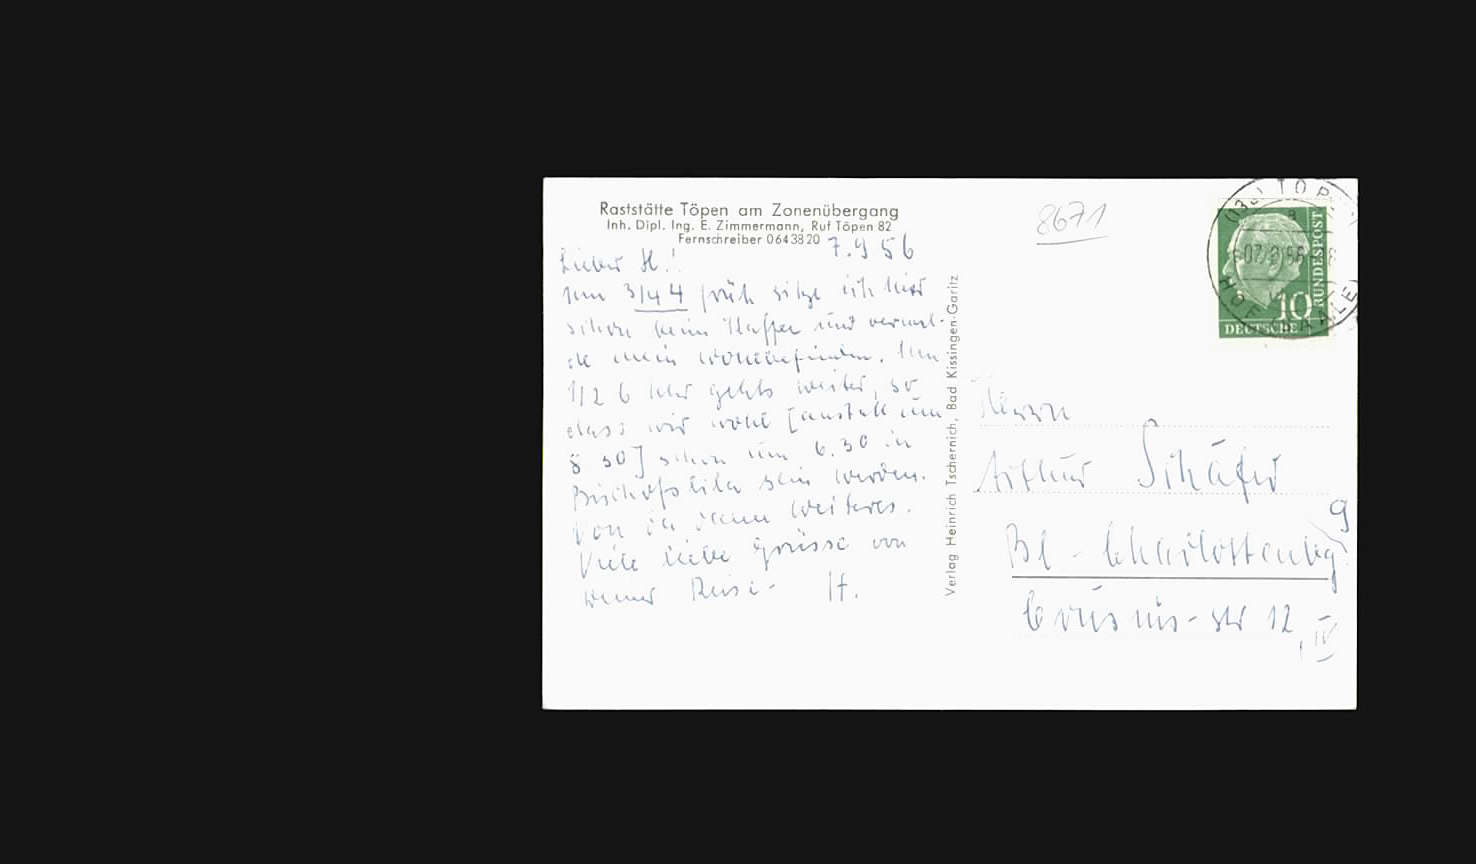 Raststätte Töpen am Zonenübergang
Inh. Dipl. Ing. E. Zimmermann, Ruf Töpen 82
Fernschreiber 0643820
7.9 56
Lieber H.!
Um 3/4 4 früh sitze ich hier
schon beim Kaffee und vermel-
de mein Wohlbefinden. Um
1/2 6 Uhr gehts weiter, so
dass wir wohl [anstatt um
8 30] schon um 6.30 in
Bischofs sein werden.
Von da dann weiteres.
Viele liebe Grüsse von
Deiner Reise- H.
Verlag Heinrich Tschernich, Bad Kissingen-Garitz
8671
TÖP
07.9.56
HOF SAALE
10
DEUTSCHE BUNDESPOST
Herrn
Arthur Schäfer
Bl - Charlottenbg 9
str 12, IV